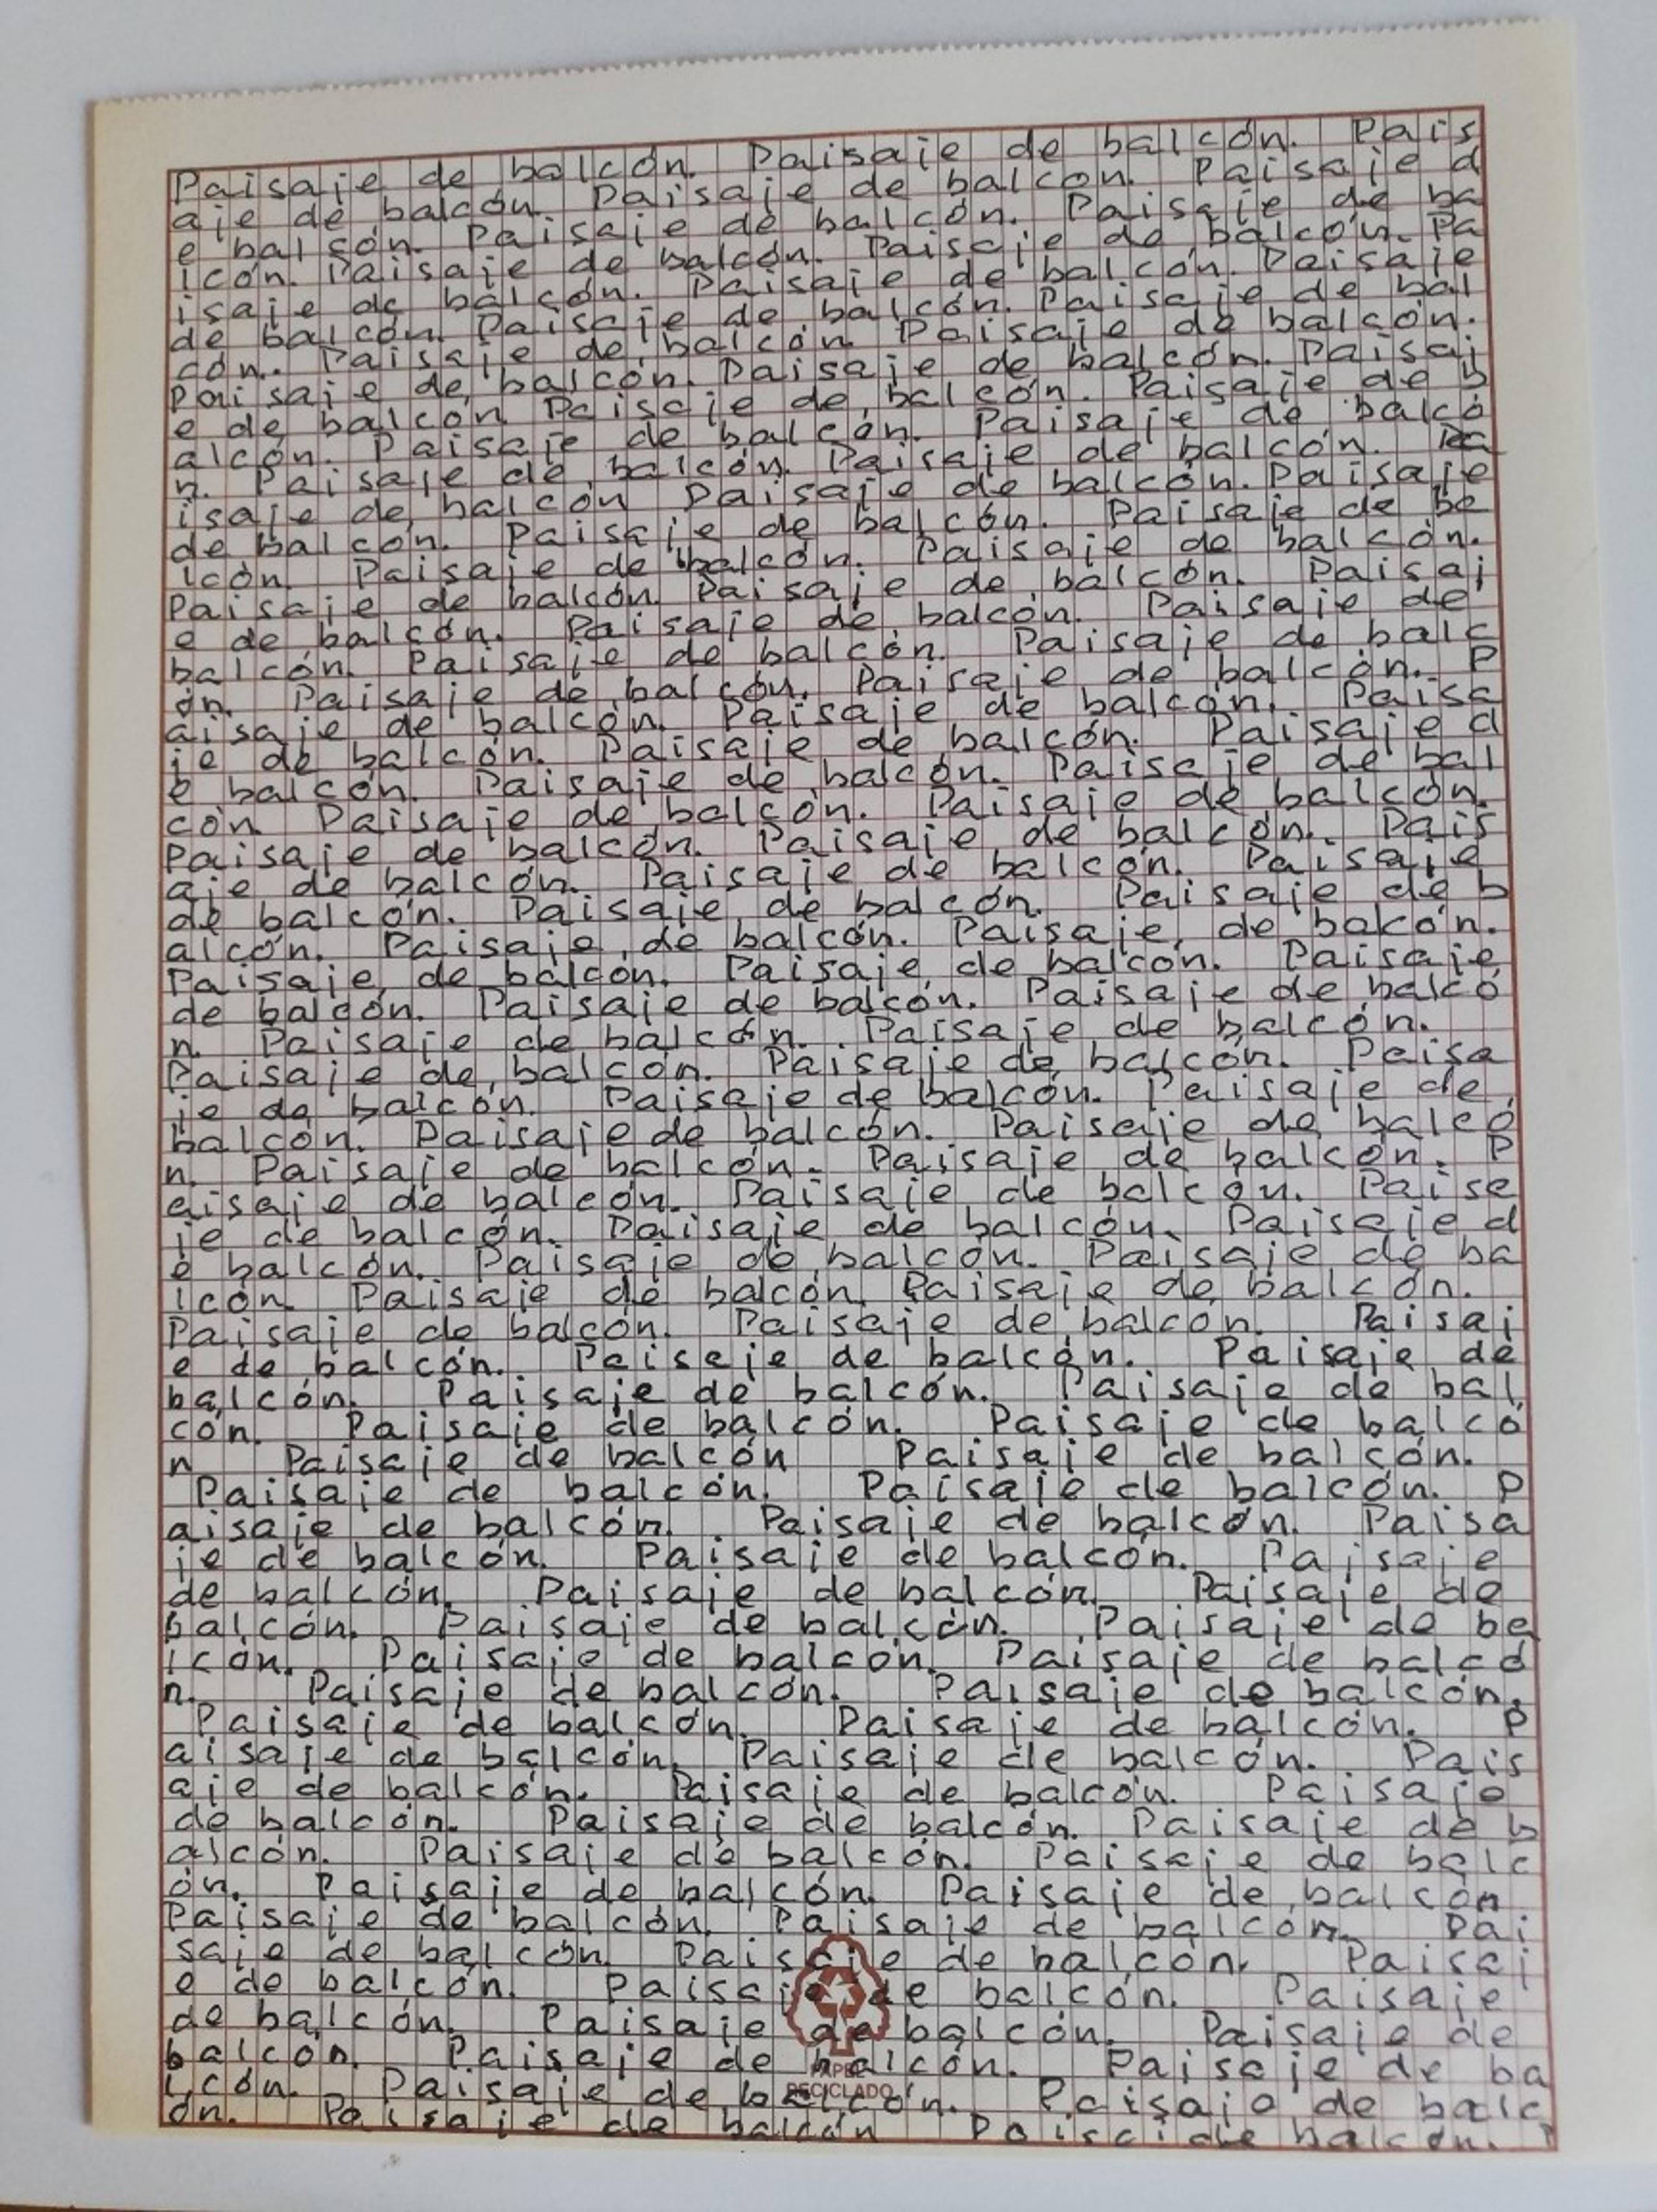 Paisaje de balcón. Paisaje de balcón. Pais
aje de balcón. Paisaje de balcón. Paisaje d
e balsón. Paisaje de balcón. Paisaje de ba
lcón. Paisaje de balcón. Paisaje de balcón. Pa
isaje de balcón. Paisaje de balcón. Paisaje
de balcón. Paisaje de balcón. Paisaje de bal
cón. Paisaje de balcón. Paisaje de balcón.
Paisaje de balcón. Paisaje de balcón. Paisaj
e de balcón Paisaje de balcón. Paisaje de b
alcón. Paisaje de balcón. Paisaje de balcó
n. Paisaje de balcón. Paisaje de balcón. Pa
isaje de balcón Paisaje de balcón. Paisaje
de balcón. Paisaje de balcón. Paisaje de ba
lcón. Paisaje de balcón. Paisaje de balcón.
Paisaje de balcón. Paisaje de balcón. Paisaj
e de balcón. Paisaje de balcón. Paisaje de
balcón. Paisaje de balcón. Paisaje de balc
ón. Paisaje de balcón. Paisaje de balcón. P
aisaje de balcón. Paisaje de balcón. Paisa
je de balcón. Paisaje de balcón. Paisaje d
e balcón. Paisaje de balcón. Paisaje de bal
cón Paisaje de balcón. Paisaje de balcón.
Paisaje de balcón. Paisaje de balcón. Pais
aje de balcón. Paisaje de balcón. Paisaje
de balcón. Paisaje de balcón. Paisaje de b
alcón. Paisaje de balcón. Paisaje de bakón.
Paisaje de balcón. Paisaje de balcón. Paisaje
de balcón. Paisaje de balcón. Paisaje de balcó
n. Paisaje de balcón. Paisaje de balcón.
Paisaje de balcón. Paisaje de balcón. Paisa
je de balcón. Paisaje de balcón. Paisaje de
balcón. Paisaje de balcón. Paisaje de balcó
n. Paisaje de balcón. Paisaje de balcón. P
aisaje de balcón. Paisaje de balcón. Paisa
je de balcón. Paisaje de balcón. Paisaje d
e balcón. Paisaje de balcón. Paisaje de ba
lcón. Paisaje de balcón. Paisaje de balcón.
Paisaje de balcón. Paisaje de balcón. Paisaj
e de balcón. Paisaje de balcón. Paisaje de
balcón. Paisaje de balcón. Paisaje de bal
cón. Paisaje de balcón. Paisaje de balcó
n Paisaje de balcón Paisaje de balcón.
Paisaje de balcón. Paisaje de balcón. P
aisaje de balcón. Paisaje de balcón. Paisa
je de balcón. Paisaje de balcón. Paisaje
de balcón. Paisaje de balcón. Paisaje de
balcón. Paisaje de balcón. Paisaje de ba
lcón. Paisaje de balcón. Paisaje de balcó
n. Paisaje de balcón. Paisaje de balcón.
Paisaje de balcón. Paisaje de balcón. P
aisaje de balcón. Paisaje de balcón. Pais
aje de balcón. Paisaje de balcón. Paisaje
de balcón. Paisaje de balcón. Paisaje de b
alcón. Paisaje de balcón. Paisaje de balc
ón. Paisaje de balcón. Paisaje de balcón
Paisaje de balcón. Paisaje de balcón. Pai
saje de balcón Paisaje de balcón. Paisaj
e de balcón. Paisaje de balcón. Paisaje
de balcón. Paisaje de balcón. Paisaje de
balcón. Paisaje de balcón. Paisaje de ba
lcón. Paisaje de balcón. Paisaje de balc
ón. Paisaje de balcón Paisaje de balcón. P
PAPEL
RECICLADO